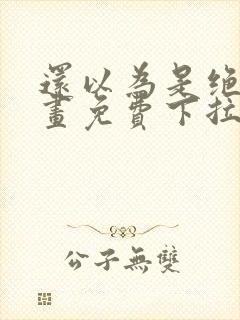 還以為是絶
畫免費下拉
公子無雙